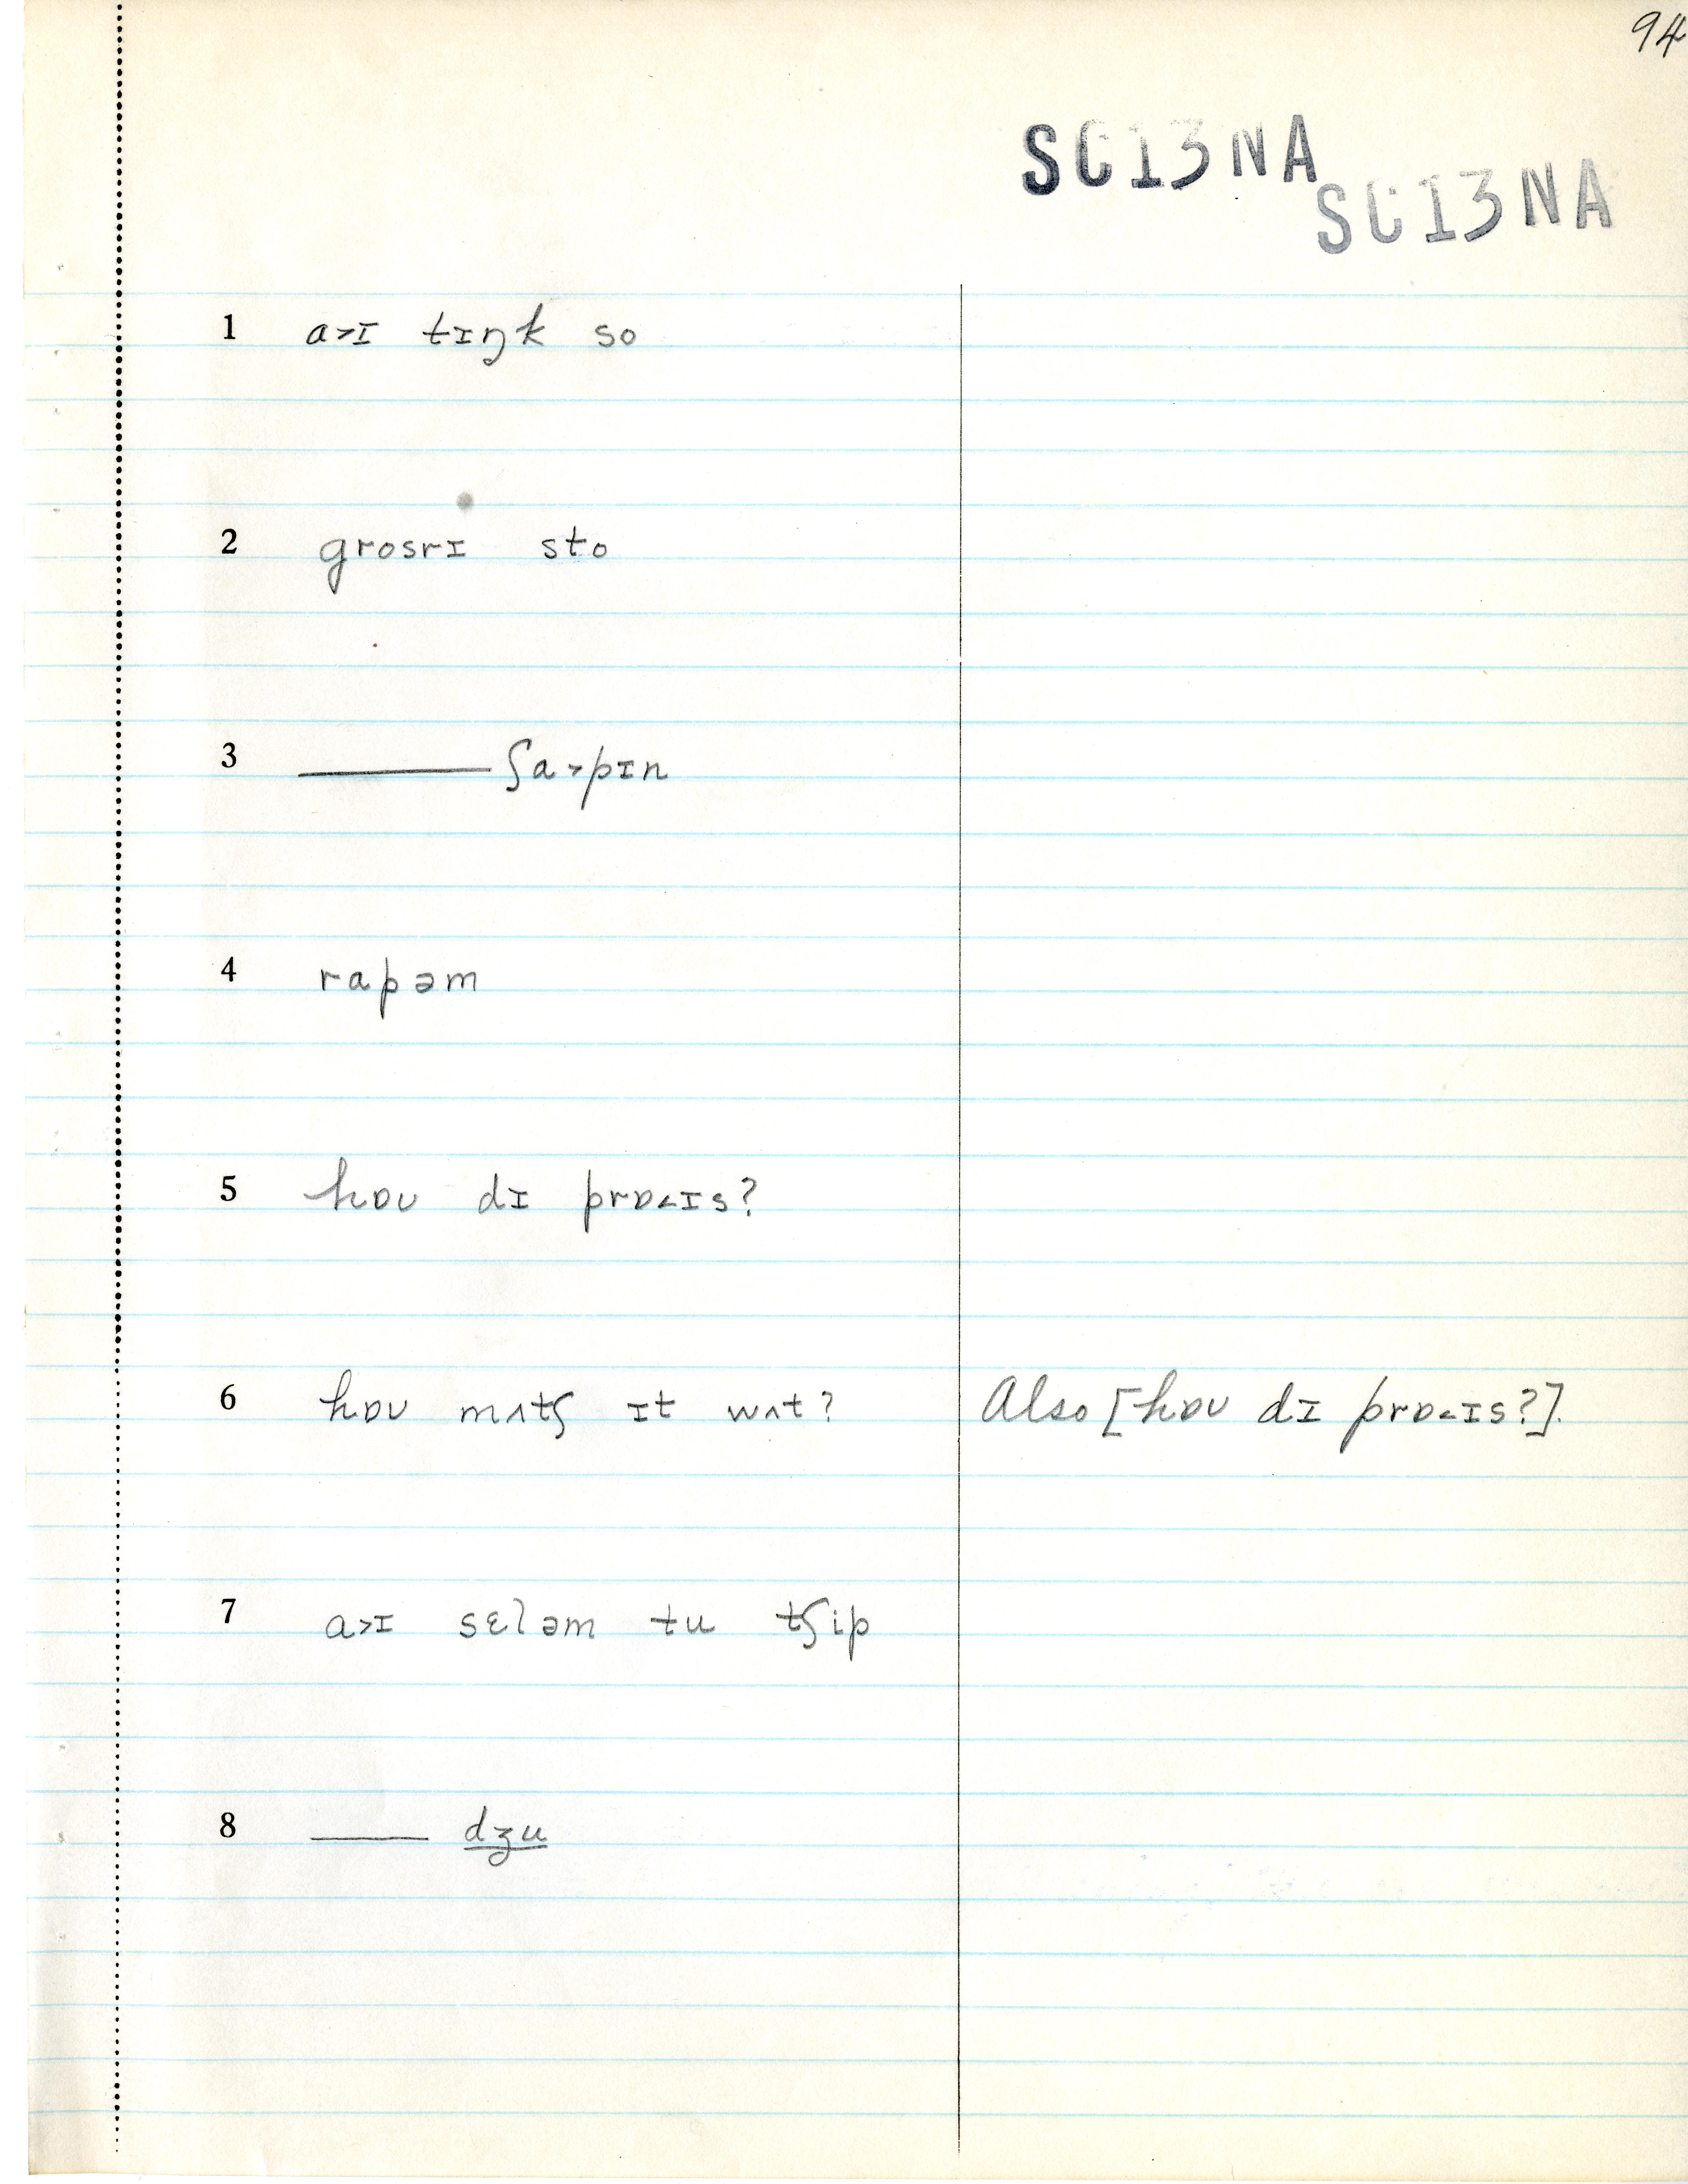 94
SC13NA
SC13NA
1 a˃ɪ tɪŋk so
2 grosrɪ sto
3 ——— ʃa˃pɪn
4 rapəm
5 hɒʊ dɪ prɒ˂ɪs?
6 hɒʊ mʌtʃ ɪt wʌt? Also [hɒʊ dɪ prɒ˂ɪs?].
7 a˃ɪ sɛləm tu tʃip
8 ——— dʒu